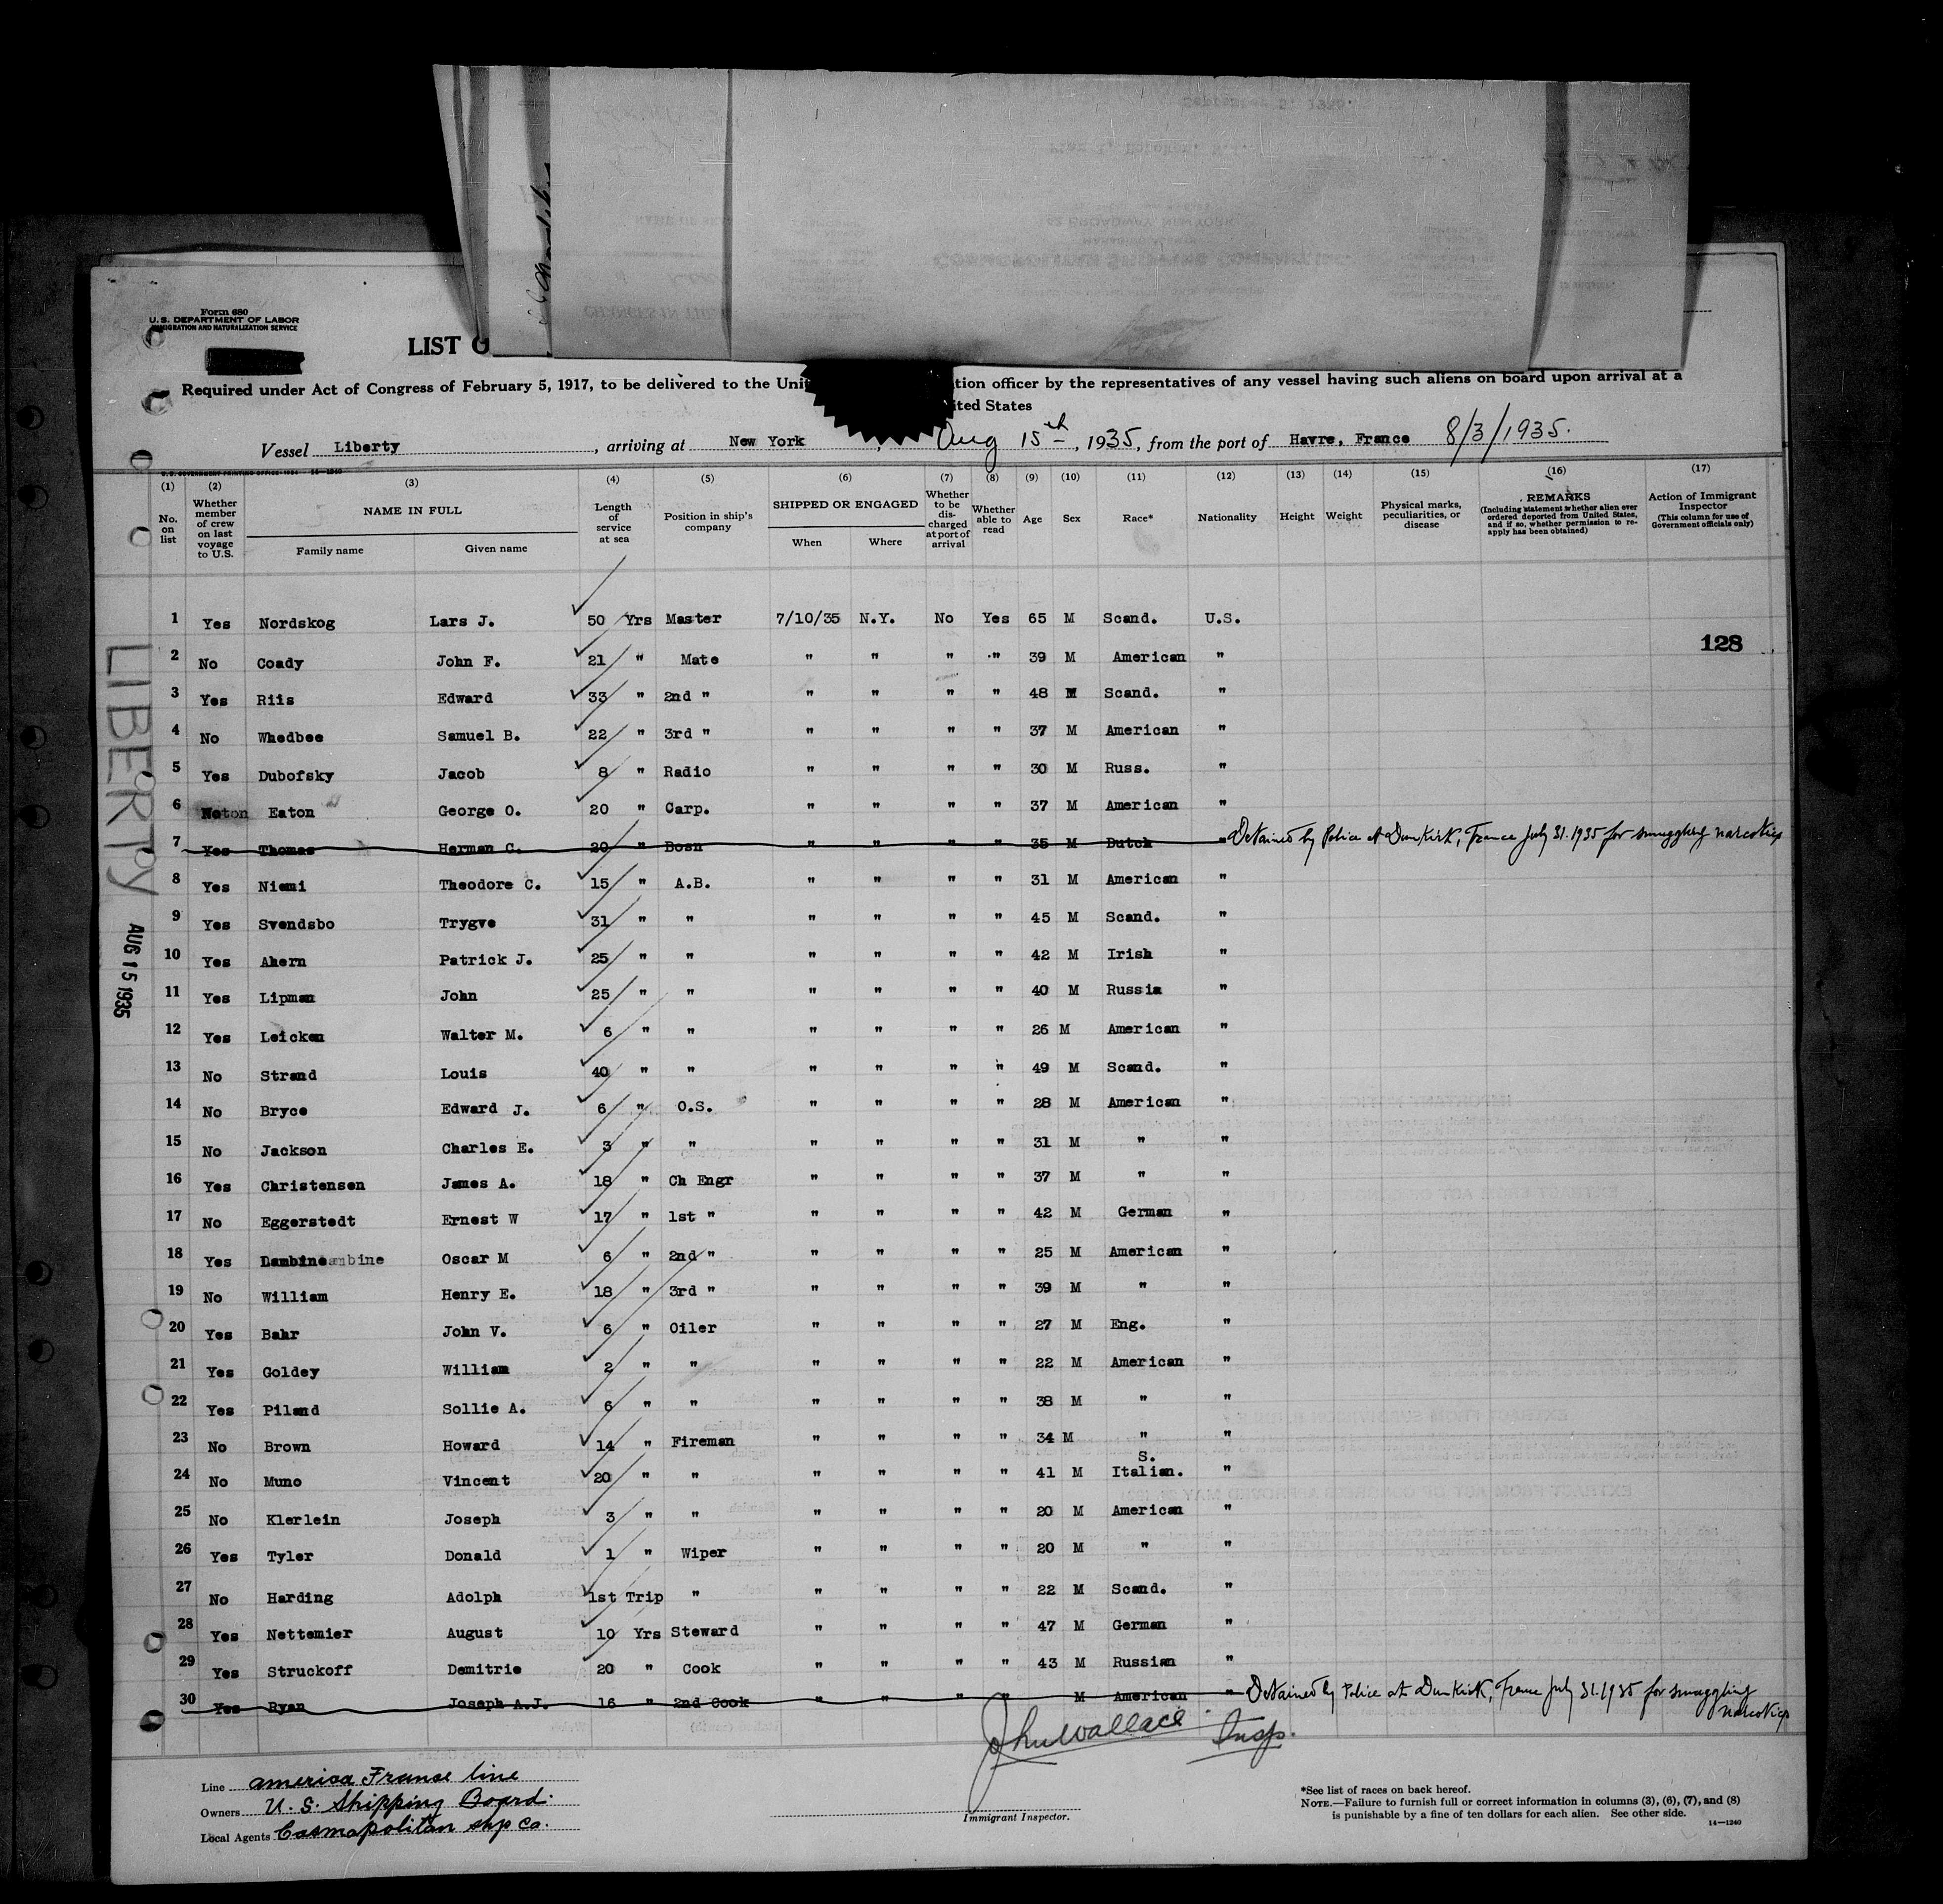 Form 680
U.S. DEPARTMENT OF LABOR
IMMIGRATION AND NATURALIZATION SERVICE
LIST O
Required under Act of Congress of February 5, 1917, to be delivered to the Unit tion officer by the representatives of any vessel having such aliens on board upon arrival at a
ited States
Vessel Liberty, arriving at New York, Aug 15th, 1935, from the port of Havre, France 8/3/1935.
(1) (2) (3) (4) (5) (6) (7) (8) (9) (10) (11) (12) (13) (14) (15) (16) (17)
No. on list
Whether member of crew on last voyage to U.S.
NAME IN FULL
Family name Given name
Length of service at sea
Position in ship's company
SHIPPED OR ENGAGED
When Where
Whether to be discharged at port of arrival
Whether able to read
Age
Sex
Race*
Nationality
Height
Weight
Physical marks, peculiarities, or disease
REMARKS
(Including statement whether alien ever ordered deported from United States, and if so, whether permission to reapply has been obtained)
Action of Immigrant Inspector
(This column for use of Government officials only)
1 Yes Nordskog Lars J. 50 Yrs Master 7/10/35 N.Y. No Yes 65 M Scand. U.S.
128
2 No Coady John F. 21 " Mate " " " " 39 M American "
3 Yes Riis Edward 33 " 2nd " " " " " 48 M Scand. "
4 No Whedbee Samuel B. 22 " 3rd " " " " " 37 M American "
5 Yes Dubofsky Jacob 8 " Radio " " " " 30 M Russ. "
6 Eaton George O. 20 " Carp. " " " " 37 M American "
7 Yes Thomas Herman C. 20 " Bosn " " " " 35 M Dutch " Detained by Police at Dunkirk, France July 31.1935 for smuggling narcotics
8 Yes Niemi Theodore C. 15 " A.B. " " " " 31 M American "
9 Yes Svendsbo Trygve 31 " " " " " " 45 M Scand. "
10 Yes Ahern Patrick J. 25 " " " " " " 42 M Irish "
11 Yes Lipman John 25 " " " " " " 40 M Russia "
12 Yes Leicken Walter M. 6 " " " " " " 26 M American "
13 No Strand Louis 40 " " " " " " 49 M Scand. "
14 No Bryce Edward J. 6 " O.S. " " " " 28 M American "
15 No Jackson Charles E. 3 " " " " " " 31 M " "
16 Yes Christensen James A. 18 " Ch Engr " " " " 37 M " "
17 No Eggerstedt Ernest W 17 " 1st " " " " " 42 M German "
18 Yes Dambine ambine Oscar M 6 " 2nd " " " " " 25 M American "
19 No William Henry E. 18 " 3rd " " " " " 39 M " "
20 Yes Bahr John V. 6 " Oiler " " " " 27 M Eng. "
21 Yes Goldey William 2 " " " " " " 22 M American "
22 Yes Piland Sollie A. 6 " " " " " " 38 M " "
23 No Brown Howard 14 " Fireman " " " " 34 M " "
24 No Muno Vincent 20 " " " " " " 41 M S. Italian. "
25 No Klerlein Joseph 3 " " " " " " 20 M American "
26 Yes Tyler Donald 1 " Wiper " " " " 20 M " "
27 No Harding Adolph 1st Trip " " " " " 22 M Scand. "
28 Yes Nettemier August 10 Yrs Steward " " " " 47 M German "
29 Yes Struckoff Demitrie 20 " Cook " " " " 43 M Russian "
30 Yes Ryan Joseph A.J. 16 " 2nd Cook " " " " M American " Detained by Police at Dunkirk, France July 31.1935 for smuggling narcotics
LIBERTY
AUG 15 1935
John Wallace Insp.
Immigrant Inspector.
Line america France line
Owners U. S. Shipping Board.
Local Agents Cosmapolitan shp Co.
*See list of races on back hereof.
NOTE.—Failure to furnish full or correct information in columns (3), (6), (7), and (8)
is punishable by a fine of ten dollars for each alien. See other side.
14—1240